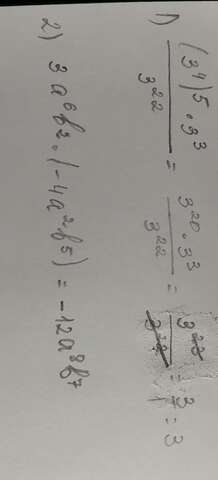 1) \frac{(3^4)^5 \cdot 3^3}{3^{22}} = \frac{3^{20} \cdot 3^3}{3^{22}} = \frac{3^{23}}{3^{22}} = \frac{3}{1} = 3
2) 3a^6b^2 \cdot (-4a^2b^5) = -12a^8b^7